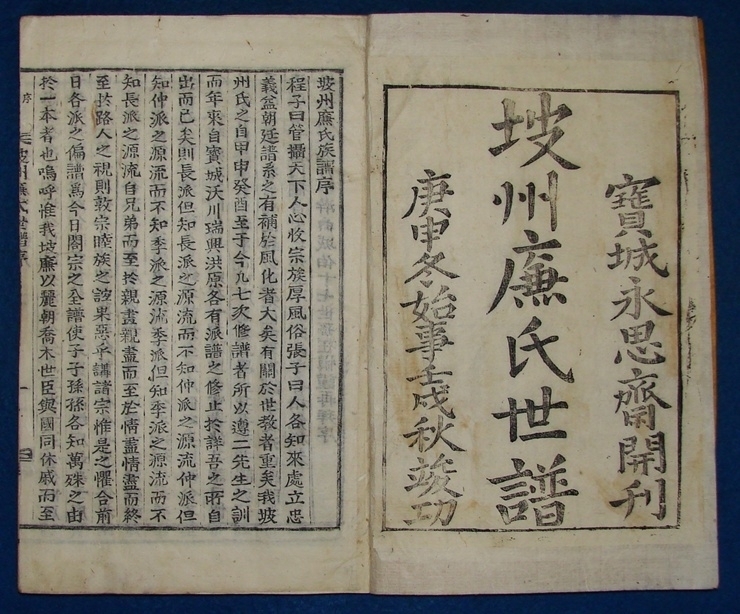 寶城永思齋開刊
坡州廉氏世譜
庚申冬始事壬戌秋竣功
坡州廉氏族譜序
程子曰管攝天下人心收宗族厚風俗張子曰人各知來處立忠
義益朝廷譜系之有補於風化者大矣有關於世教者重矣我坡
州氏之自甲申癸酉至于今凡七次修譜者所以遵二先生之訓
而年來自寶城沃川瑞興洪原各有派譜之修止於詳吾之所自
出而已矣則長派但知長派之源流而不知仲派之源流仲派但
知仲派之源流而不知季派之源流季派但知季派之源流而不
知長派之源流自兄弟而至於親盡親盡而至於情盡情盡而終
至於路人之視則敦宗睦族之誼果惡乎講諸宗惟是之懼合前
日各派之偏譜爲今日闔宗之全譜使子子孫孫各知萬殊之由
於一本者也嗚呼惟我坡廉以麗朝喬木世臣與國同休戚而至
序
坡州廉氏世譜序